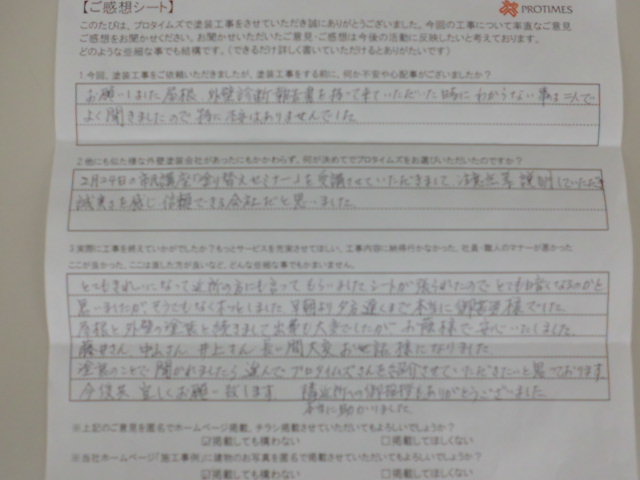 【ご感想シート】
PROTIMES
このたびは、プロタイムズで塗装工事をさせていただき誠にありがとうございました。今回の工事について率直なご意見
ご感想をお聞かせください。お聞かせいただいたご意見・ご感想は今後の活動に反映したいと考えております。
どのような些細な事でも結構です。（できるだけ詳しく書いていただけるとありがたいです）
1.今回、塗装工事をご依頼いただきましたが、塗装工事をする前に、何か不安や心配事がございましたか？
お願いしました屋根、外壁診断報告書を持って来ていただいた時に わからない事は 二人で
よく聞きましたので 特に 不安はありませんでした。
2.他にも似た様な外壁塗装会社があったにもかかわらず、何が決めてでプロタイムズをお選びいただいたのですか？
2月24日の市民講座「塗り替えセミナー」を受講させていただきまして、注意点等 説明していただき
誠実さを感じ 信頼できる会社だと思いました。
3.実際に工事を終えていかがでしたか？もっとサービスを充実させてほしい、工事内容に納得行かなかった、社員・職人のマナーが悪かった
ここが良かった、ここは直した方が良いなど、どんな些細な事でもかまいません。
とてもきれいになって 近所の方にも言って もらいました シートが張られたので とても暗くなるのかと
思いましたが、そうでもなくホッとしました 早朝より夕方遅くまで 本当に 御苦労様でした。
屋根と外壁の塗装と続きまして 出費も大変でしたが お蔭様で 安心いたしました。
藤井さん 中山さん 井上さん 長い間大変お世話様になりました。
塗装のことで 聞かれましたら 喜んで プロタイムズさんを紹介させていただきたいと思っております
今後共 宜しくお願い致します 隣近所への御挨拶もありがとうございました
本当に助かりました。
※上記のご意見を匿名でホームページ掲載、チラシ掲載させていただいてもよろしいでしょうか？
☑掲載しても構わない □掲載してほしくない
※当社ホームページ「施工事例」に建物のお写真を匿名で掲載させていただいてもよろしいでしょうか？
☑掲載しても構わない □掲載してほしくない